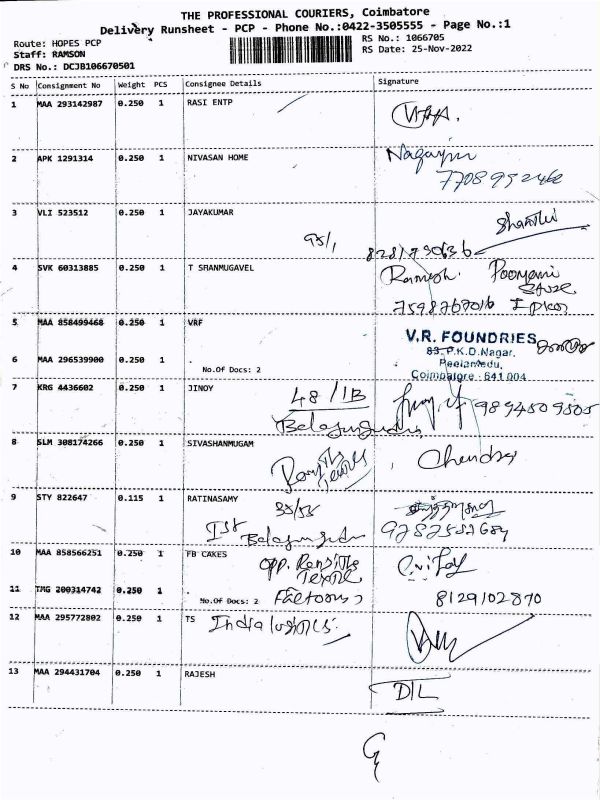 THE PROFESSIONAL COURIERS, Coimbatore
Delivery Runsheet - PCP - Phone No.:0422-3505555 - Page No.:1
Route: HOPES PCP
RS No.: 1066705
Staff: RAMSON
RS Date: 25-Nov-2022
DRS No.: DCJB106670501
S No Consignment No Weight PCS Consignee Details Signature
1 MAA 293142987 0.250 1 RASI ENTP
2 APK 1291314 0.250 1 NIVASAN HOME
3 VLI 523512 0.250 1 JAYAKUMAR Shanthi
95/1
4 SVK 60313885 0.250 1 T SHANMUGAVEL Ramesh.
7598767016
5 MAA 858499468 0.250 1 VRF
V.R. FOUNDRIES
83, P.K.D.Nagar,
Peelamedu,
Coimbatore - 641 004
6 MAA 296539900 0.250 1 .
No.Of Docs: 2
7 KRG 4436602 0.250 1 JINOY 48/1B 9894509505
8 SLM 308174266 0.250 1 SIVASHANMUGAM
9 STY 822647 0.115 1 RATINASAMY
10 MAA 858566251 0.250 1 FB CAKES
opp.
11 TMG 200314742 0.250 1 .
No.Of Docs: 2 8129102870
12 MAA 295772802 0.250 1 TS India logistics.
13 MAA 294431704 0.250 1 RAJESH DTL